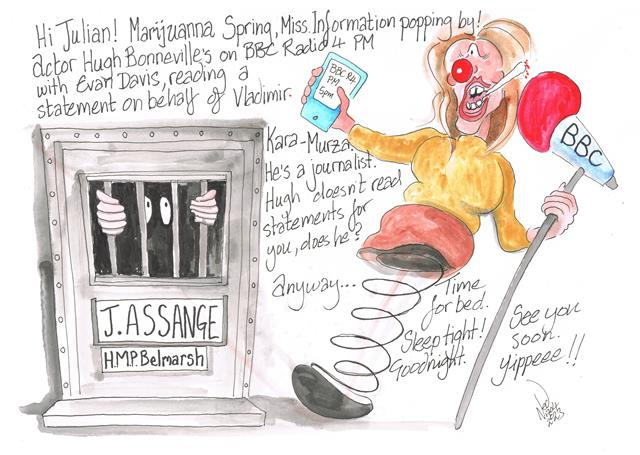 Hi Julian! Marijuanna Spring, Miss.Information popping by!
actor Hugh Bonneville's on BBC Radio 4 PM
with Evan Davis, reading a
statement on behalf of Vladimir.
Kara-Murza.
He's a journalist.
Hugh doesn't read
statements for
you, does he?
anyway...
Time
for bed.
Sleep tight!
Goodnight.
See you
soon.
yippeee!!
BBC R4
PM
5pm
BBC
J. ASSANGE
H.M.P. Belmarsh